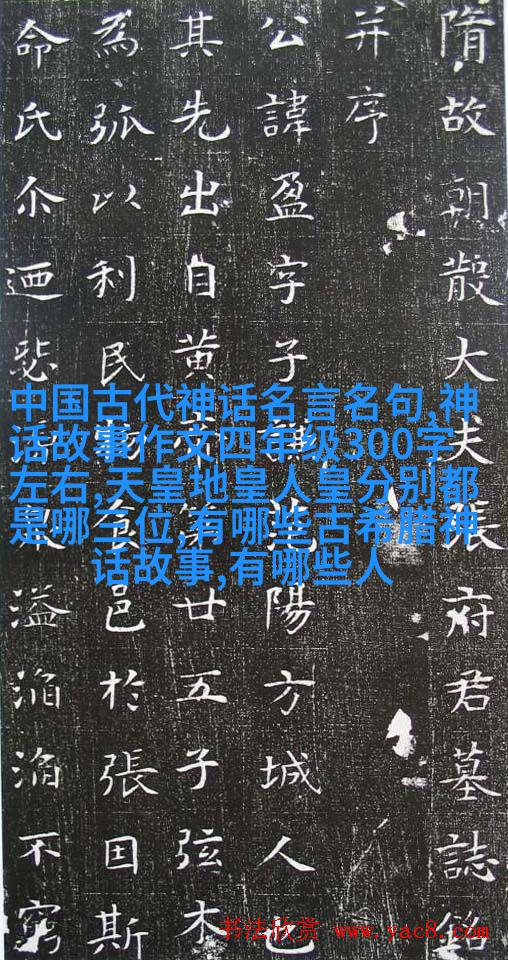 隋故朝散大夫張府君墓誌銘
并序
公諱盈字子陽方城人也
其先出自黄帝第廿五子弦木
為弧以利民食邑於張因斯
命氏尒迺溢滔滔不窮
中国古代神话名言名句,神
话故事作文四年级300字
左右,天皇地皇人皇分别都
是哪三位,有哪些古希腊神
话故事,有哪些人
书法欣赏 www.yac8.com